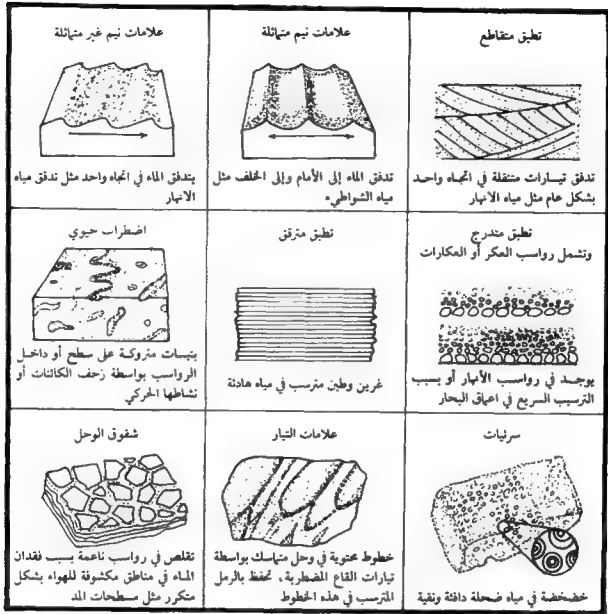 تطبق متقاطع
تدفق تيارات متنقلة في اتجاه واحد
بشكل عام مثل مياه الانهار
علامات نيم متماثلة
تدفق الماء إلى الأمام وإلى الخلف مثل
مياه الشواطىء
علامات نيم غير متماثلة
يتدفق الماء في اتجاه واحد مثل تدفق مياه
الانهار
تطبق متدرج
وتشمل رواسب العكر أو العكارات
يوجد في رواسب الأنهار أو بسبب
الترسيب السريع في اعماق البحار
تطبق مترقق
غرين وطين مترسب في مياه هادئة
اضطراب حيوي
بنيات متروكة على سطح أو داخل
الرواسب بواسطة زحف الكائنات أو
نشاطها الحركي
سرئيات
خضخضة في مياه ضحلة دافئة ونقية
علامات التيار
خطوط محتوية في وحل متماسك بواسطة
تيارات القاع المضطربة، تحفظ بالرمل
المترسب في هذه الخطوط
شقوق الوحل
تقلص في رواسب ناعمة بسبب فقدان
الماء في مناطق مكشوفة للهواء بشكل
متكرر مثل مسطحات المد